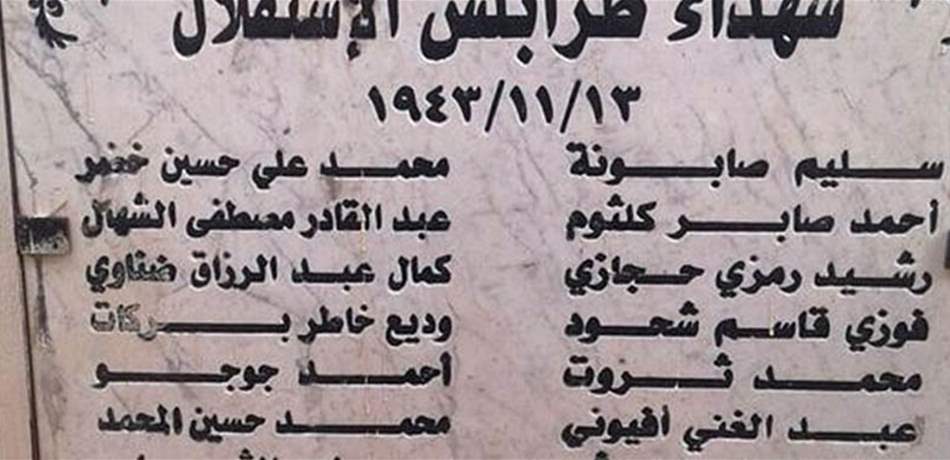 شهداء طرابلس الإستقلال
١٩٤٣/١١/١٣
سليم صابونة محمد علي حسين خضر
أحمد صابر كلثوم عبد القادر مصطفى الشهال
رشيد رمزي حجازي كمال عبد الرزاق ضناوي
فوزي قاسم شحود وديع خاطر بركات
محمد ثروت أحمد جوجو
عبد الغني أفيوني محمد حسين المحمد